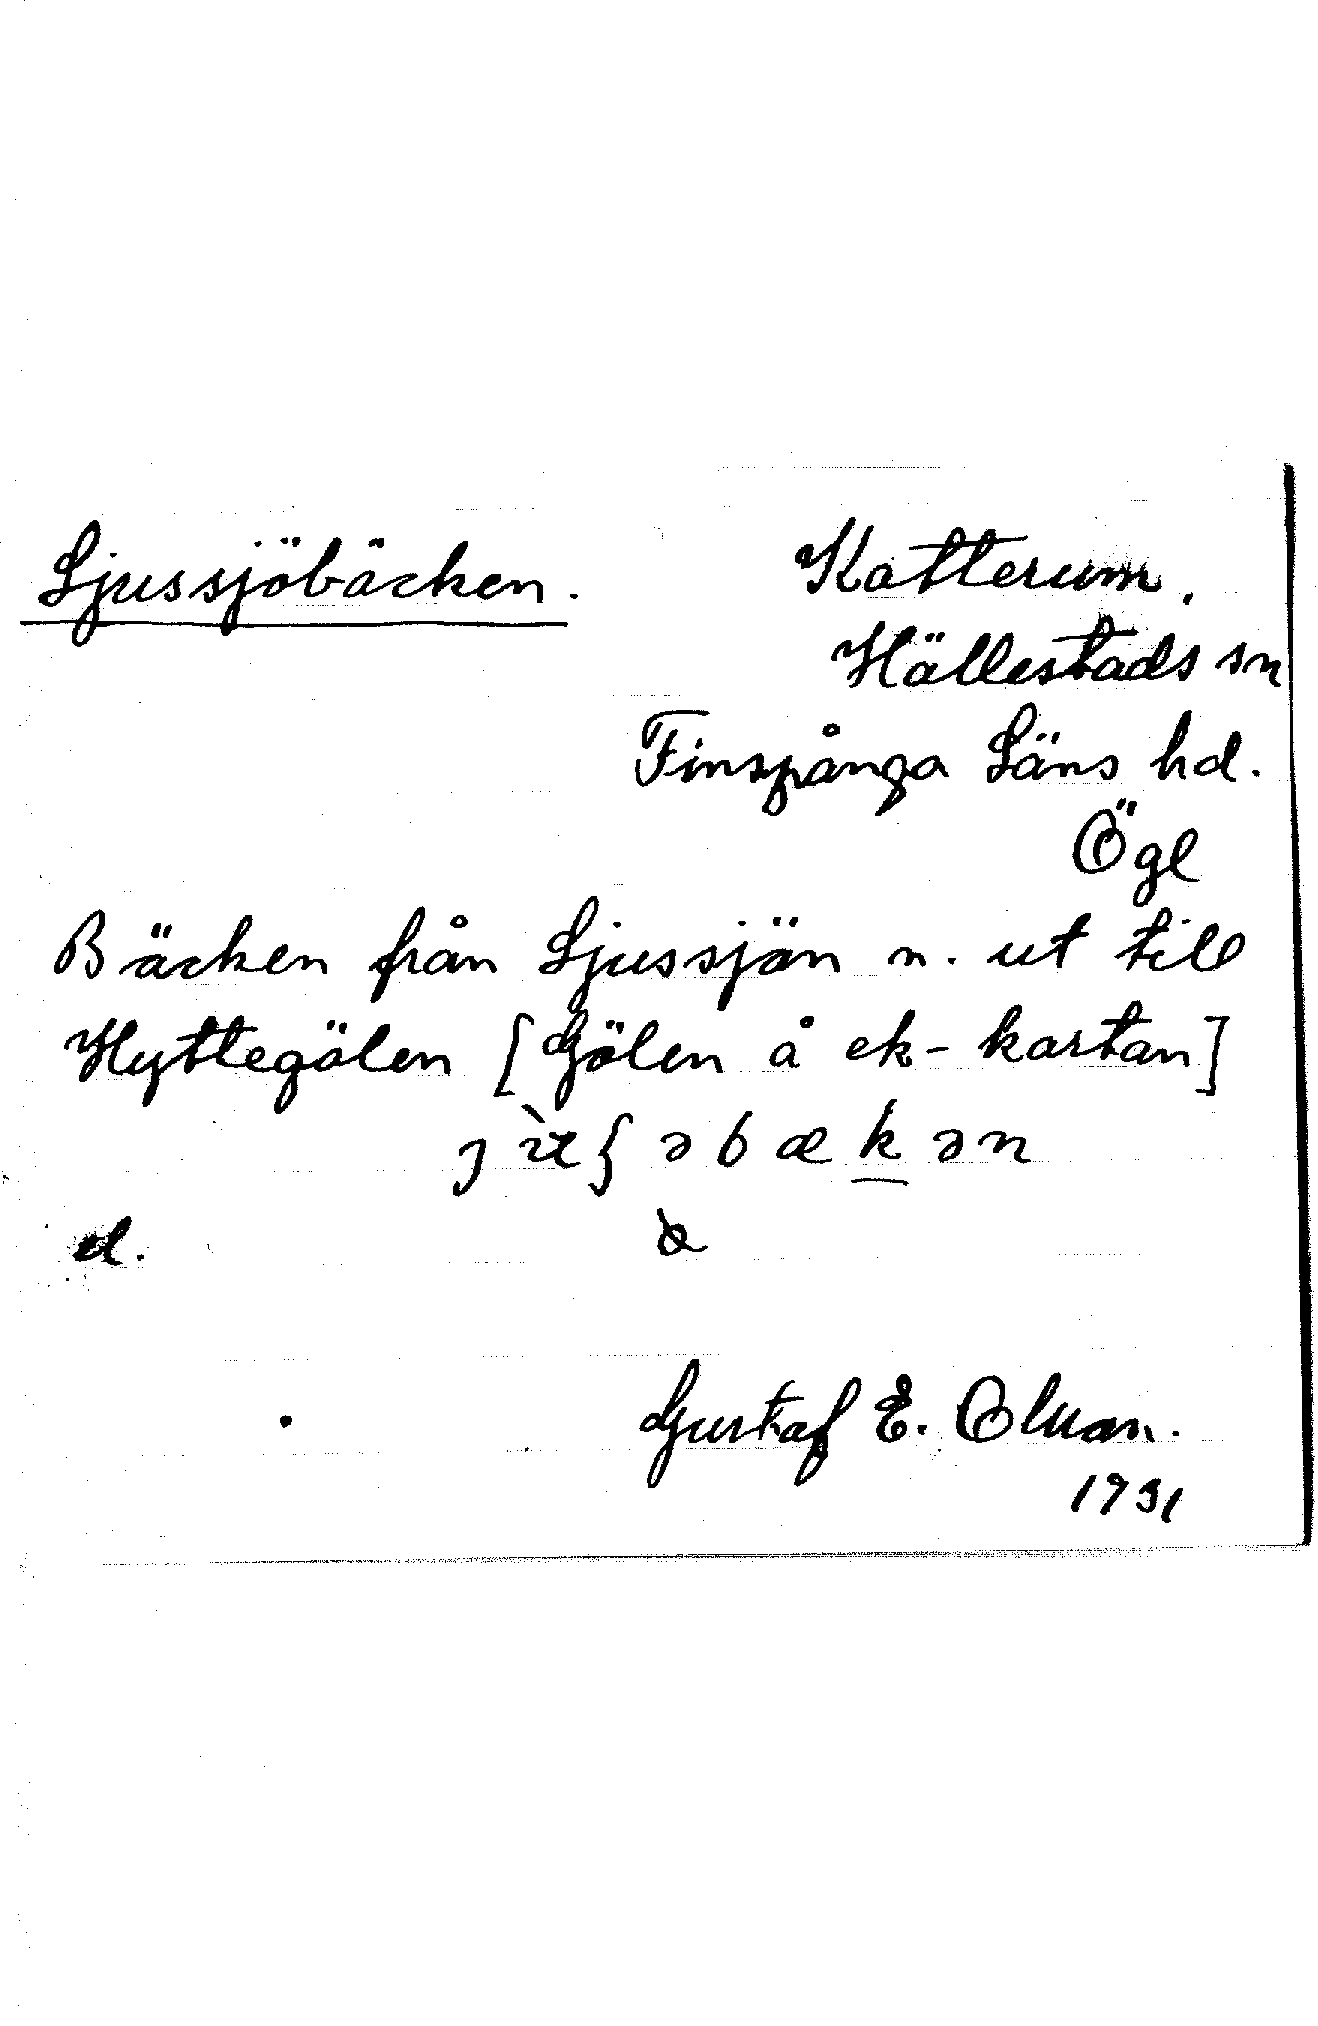 Ljussjöbäcken. Katterum.
Hällestads sn
Finspånga Läns hd.
Ögl
Bäcken från Ljussjön n. ut till
Hyttegölen [Gölen å ek-kartan]
d.
Gustaf E. Olsson.
1931